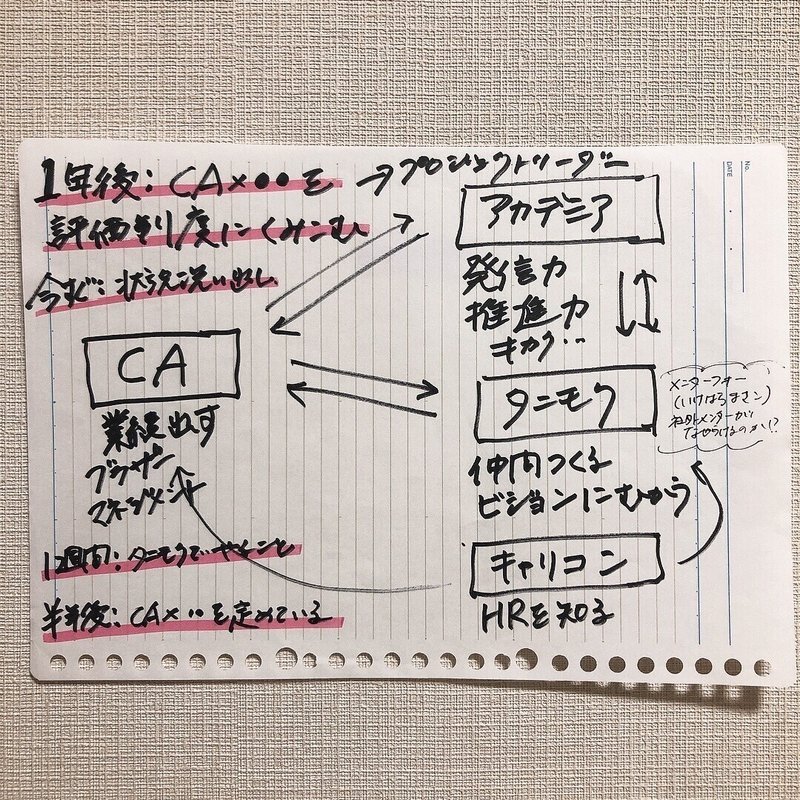 1年後：CA×●●を
評価制度にくみこむ
今すぐ：状況洗い出し
→プロジェクトリーダー
アカデミア
発信力
推進力
キカク‥
CA
業績出す
ブラザー
マネジメント
タニモク
仲間つくる
ビジョンにむかう
メンターフォー
(いけはらさん)
社外メンターが
なぜうけるのか!?
キャリコン
HRを知る
1週間：タニモクでやること
半年後：CA×‥を定めている
No.
DATE